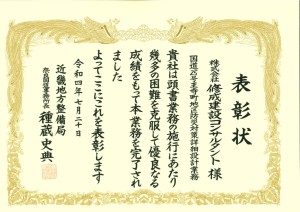 表彰状
株式会社 修成建設コンサルタント 様
国道25号王寺町地区防災対策詳細設計業務
貴社は頭書業務の施行にあたり
幾多の困難を克服して優良なる
成績をもって本業務を完了され
ました
よってここにこれを表彰します
令和四年七月二十日
近畿地方整備局
奈良国道事務所長 種蔵史典